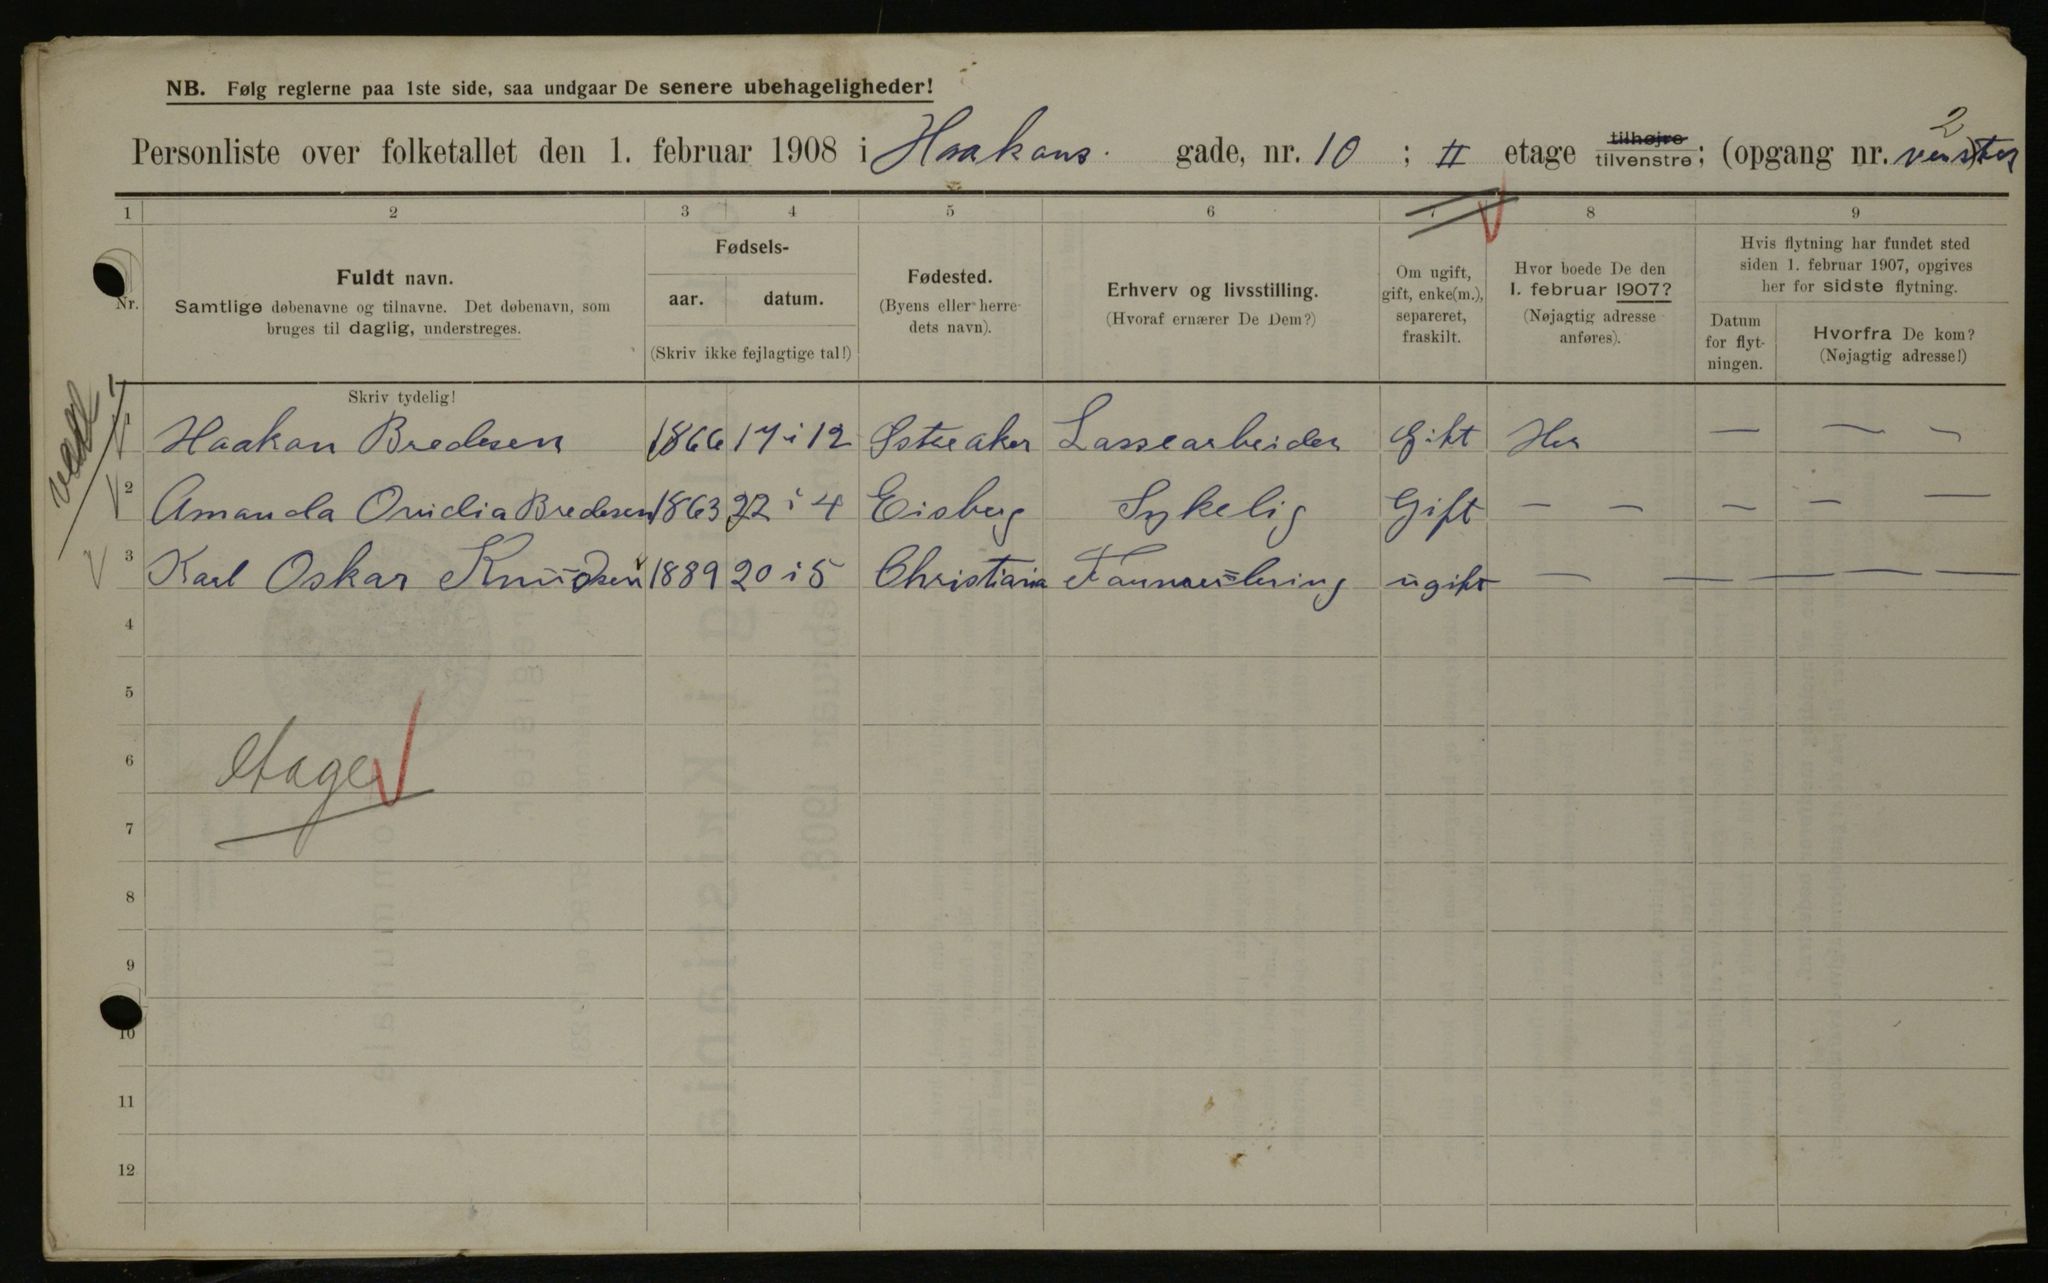 NB. Følg reglerne paa 1ste side, saa undgaar De senere ubehageligheder!
Personliste over folketallet den 1. februar 1908 i Haakons gade, nr. 10; II etage tilhøjre tilvenstre; (opgang nr. 2) venster
1 2 3 4 5 6 7 8 9
Nr.
Fuldt navn.
Samtlige døbenavne og tilnavne. Det døbenavn, som
bruges til daglig, understreges.
Fødsels-
aar. datum.
(Skriv ikke fejlagtige tal!)
Fødested.
(Byens eller herre-
dets navn).
Erhverv og livsstilling.
(Hvoraf ernærer De Dem?)
Om ugift,
gift, enke(m.),
separeret,
fraskilt.
Hvor boede De den
1. februar 1907?
(Nøjagtig adresse
anføres).
Hvis flytning har fundet sted
siden 1. februar 1907, opgives
her for sidste flytning.
Datum
for flyt-
ningen.
Hvorfra De kom?
(Nøjagtig adresse!)
Skriv tydelig!
1 Haakon Bredesen 1866 17 i 12 Østreaker Lassearbeider Gift Her — — —
2 Amanda Ovidia Bredesen 1863 22 i 4 Eisberg Sykelig Gift — — — — —
3 Karl Oskar Knudsen 1889 20 i 5 Christiania ugift — — — — —
4
5
6
etage
7
8
9
10
11
12